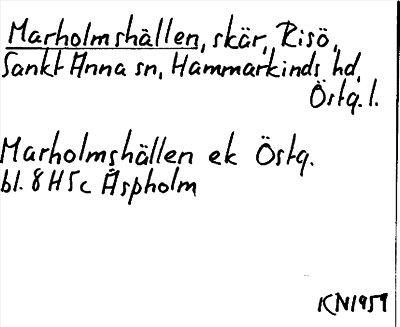 Marholmshällen, skär, Risö,
Sankt Anna sn, Hammarkinds hd,
Östg. l.
Marholmshällen ek Östg.
bl. 8H5c Aspholm
KN1959